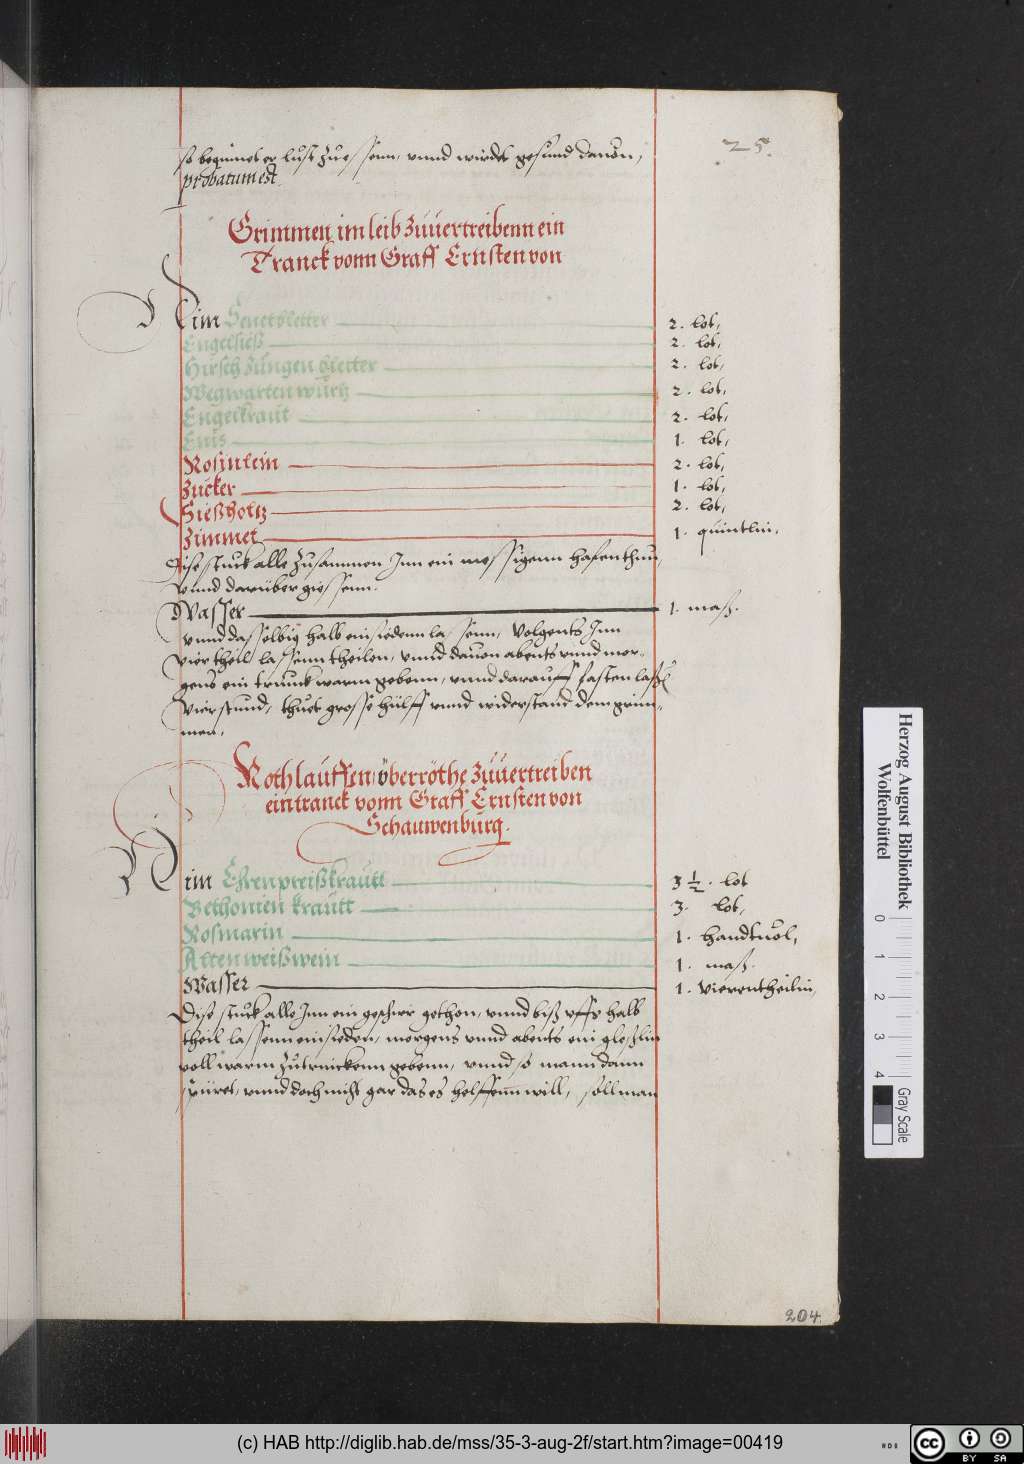 25.
so beginnet er lust zu essenn, vnnd wirdet gesund dauon,
probatum est.
Grimmen im leib zuuertreibenn ein
Tranck vonn Graff Ernsten von
Nim Senetbletter 2. lot,
Engelsieß 2. lot,
Hirsch zungen bletter 2. lot,
Wegwarten wurtz 2. lot,
Engelkraut 2. lot,
Enis 1. lot,
Rosinlein 2. lot,
Zucker 1. lot,
Sießholtz 2. lot,
Zimmet 1. quintlin.
Dise stuck alle zusammen Inn ein messigenn hafen thun,
vnnd darüber giessenn.
Wasser 1. maß.
vnnd dasselbig halb einsiedenn lassenn, Volgents Inn
vier theil lassenn theilen, vnnd dauon abents vnnd mor-
gens ein trunck warm gebenn, vnnd darauff fasten lassen
vier stund, thuet grosse hülff vnnd widerstand dem grim-
men.
Rothlauffen, öberröthe zuuertreiben
ein tranck vonn Graff Ernsten von
Schauwenburg.
Nim Ehrenpreißkrautt 3 1/2. lot
Bethonien krautt 3. lot,
Rosmarin 1. handtuol,
Alten weißwein 1. maß.
Wasser 1. vierentheilin,
Dise stuck alle Inn ein geschir gethon, vnnd biß vff halb
theil lassenn einsieden, morgens vnnd abents ein gleßlin
voll warm zutrinckenn gebenn, vnnd so mann dann
spüret, vnnd doch nicht gar das es helffenn will, soll man
204.
Herzog August Bibliothek
Wolfenbüttel
0 1 2 3 4
Gray Scale
(c) HAB http://diglib.hab.de/mss/35-3-aug-2f/start.htm?image=00419
cc BY SA